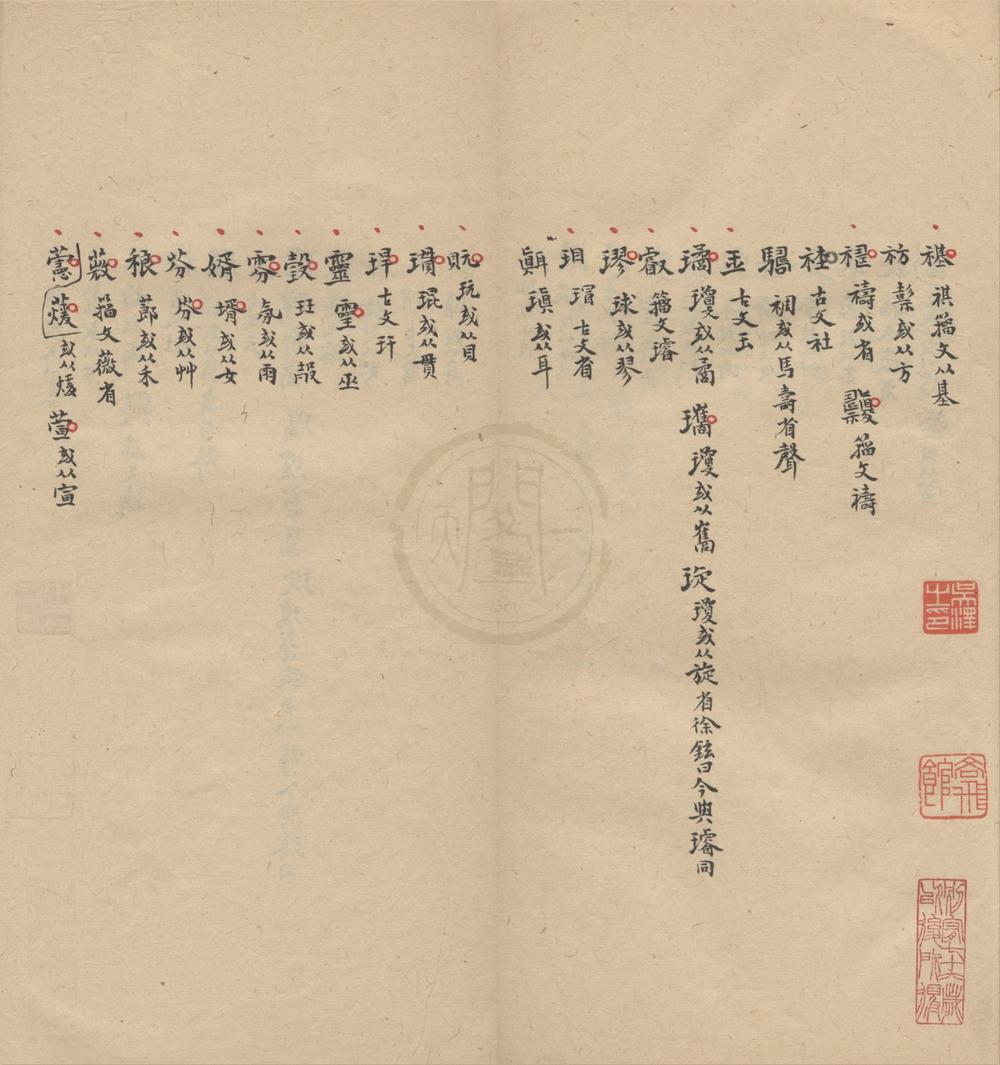 禥祺籀文从基
祊䰞或从方
禂禱或省 𥜹籀文禱
䄕古文社
騳禂或从馬壽省聲
𤣪古文玉
璚瓊或从矞 瓗瓊或从巂 琁瓊或从旋省徐鉉曰今與璿同
叡籀文璿
璆球或从翏
玥瑁古文省
䫀瑱或从耳
貦玩或从貝
瑻琨或从貫
玵古文玕
靈𤫊或从巫
瑴玨或从㱿
雰氛或从雨
婿壻或从女
芬㞣或从艸
稂蓈或从禾
䕷籀文薇省
藼蕿或从煖 萱或从宣
吳澤之印